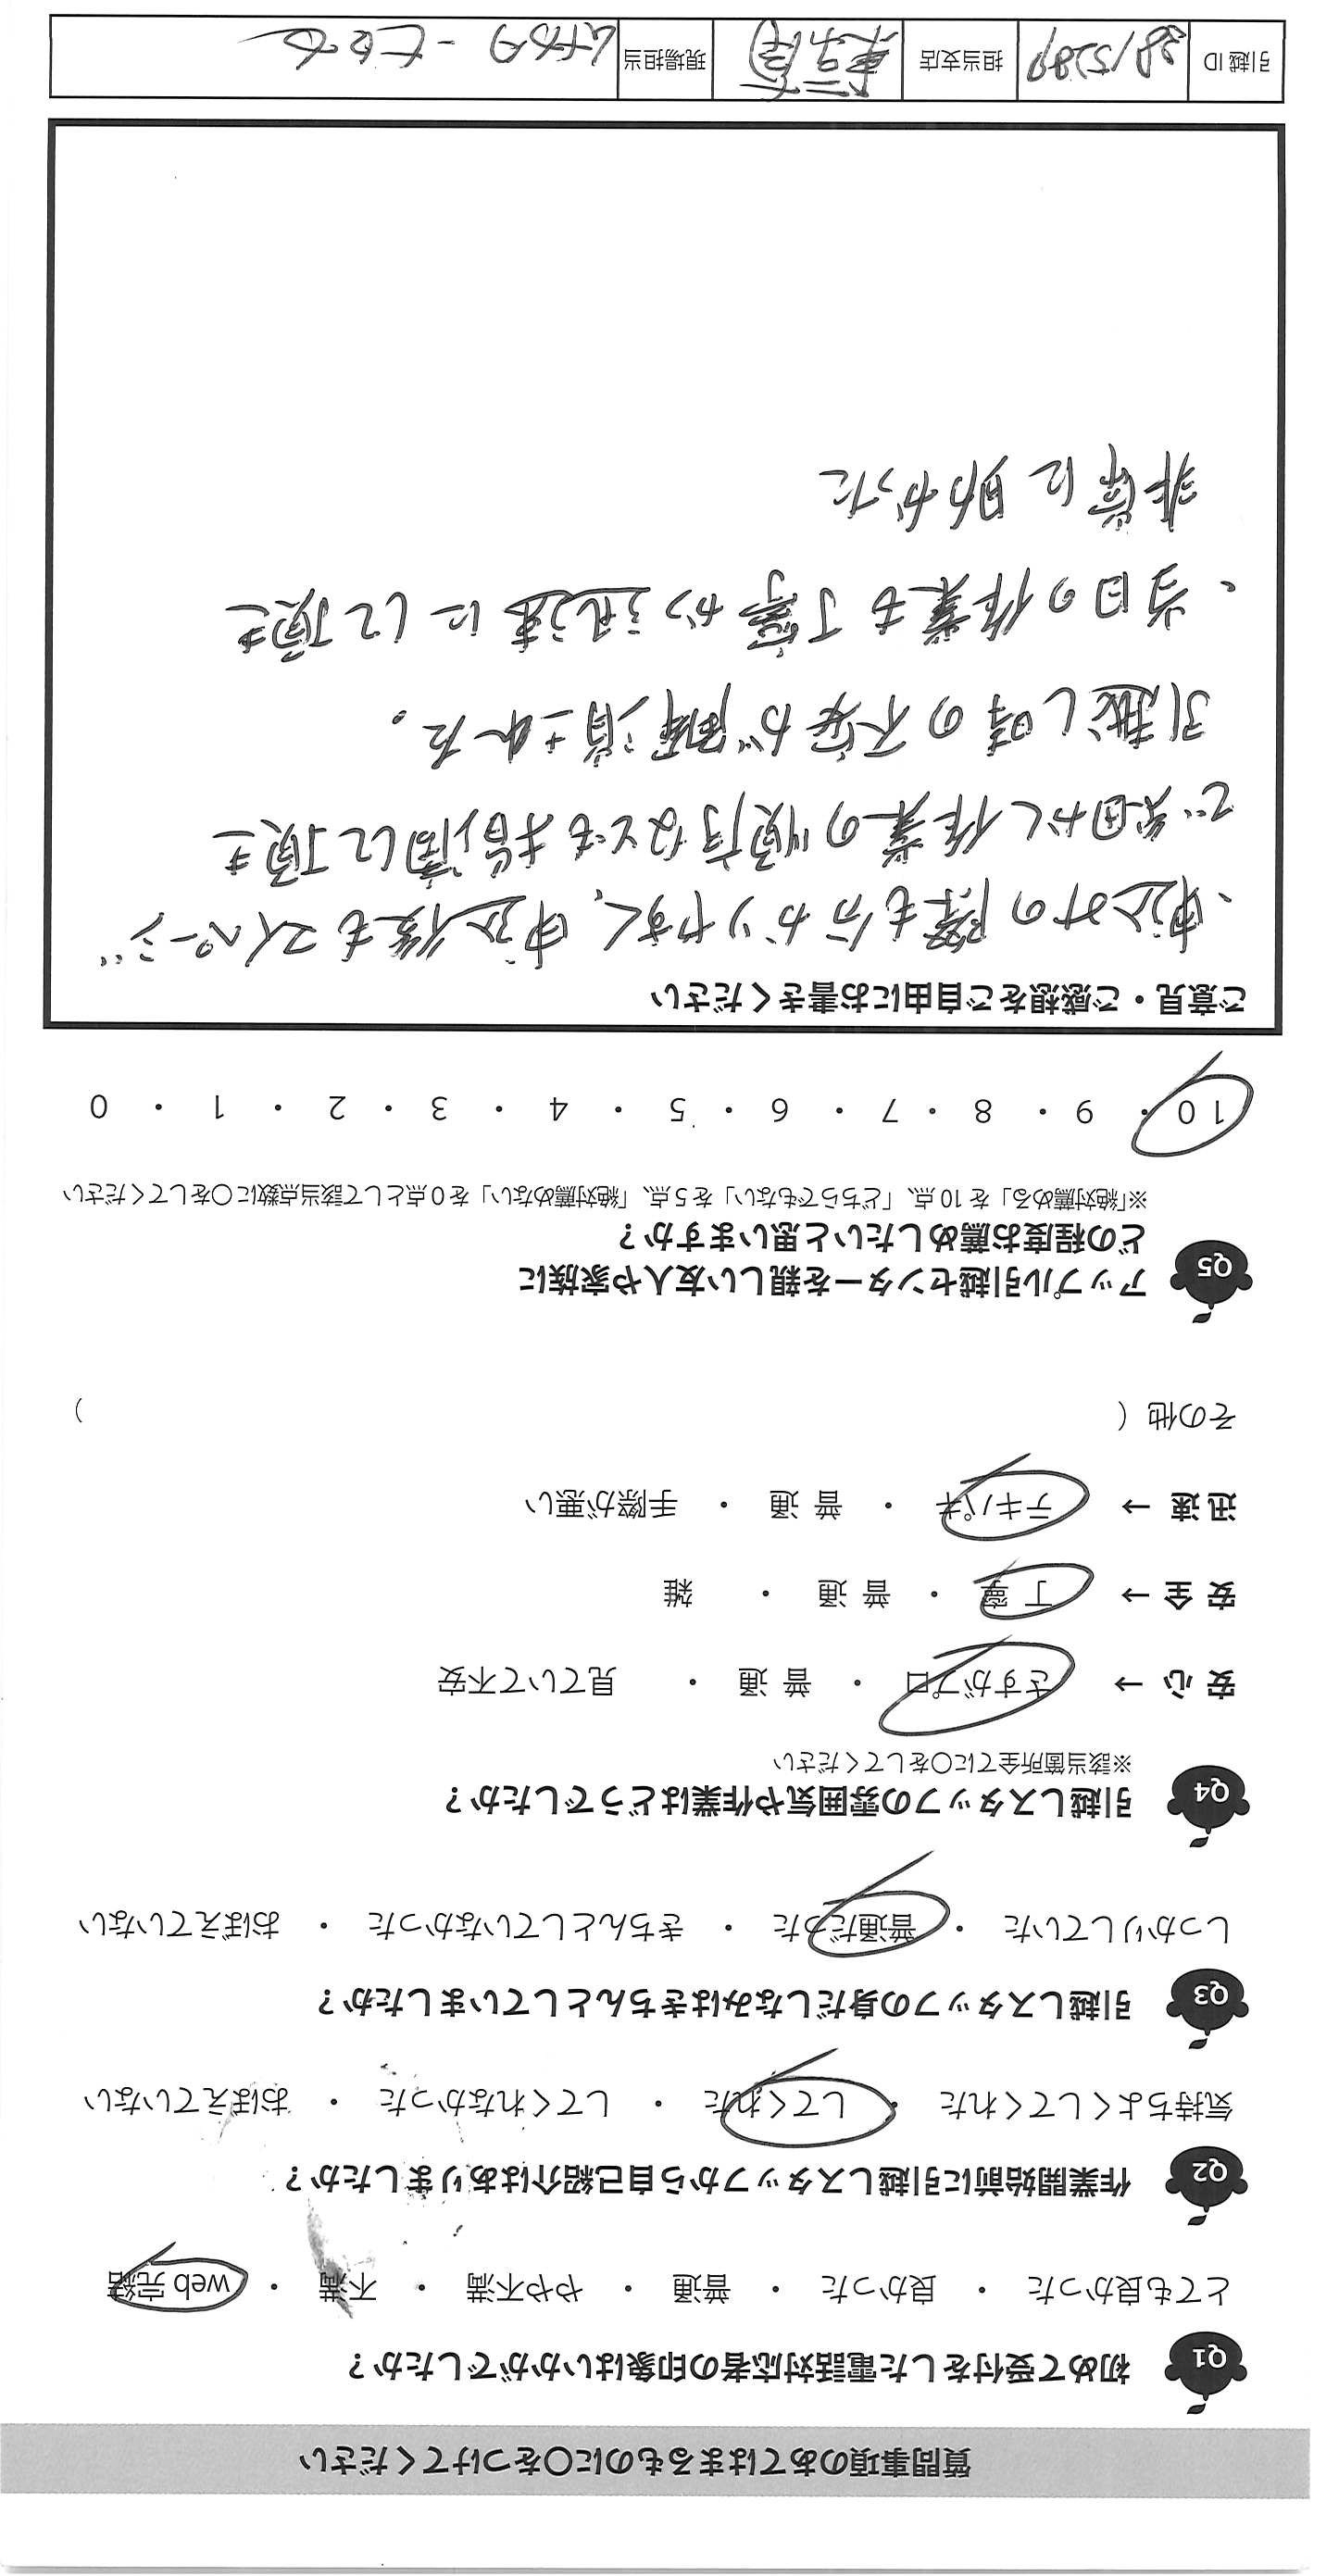 質問事項のあてはまるものに〇をつけてください
Q1 初めて受付をした電話対応者の印象はいかがでしたか？
とても良かった ・ 良かった ・ 普通 ・ やや不満 ・ 不満 ・ web 完結
Q2 作業開始前に引越しスタッフから自己紹介はありましたか？
気持ちよくしてくれた ・ してくれた ・ してくれなかった ・ おぼえていない
Q3 引越しスタッフの身だしなみはきちんとしていましたか？
しっかりしていた ・ 普通だった ・ きちんとしていなかった ・ おぼえていない
Q4 引越しスタッフの雰囲気や作業はどうでしたか？
※該当箇所全てに〇をしてください
安心 → さすがプロ ・ 普通 ・ 見ていて不安
安全 → 丁寧 ・ 普通 ・ 雑
迅速 → テキパキ ・ 普通 ・ 手際が悪い
その他（ ）
Q5 アップル引越センターを親しい友人や家族に
どの程度お薦めしたいと思いますか？
※「絶対薦める」を 10 点、「どちらでもない」を 5 点、「絶対薦めない」を 0 点として該当点数に〇をしてください
10 ・ 9 ・ 8 ・ 7 ・ 6 ・ 5 ・ 4 ・ 3 ・ 2 ・ 1 ・ 0
ご意見・ご感想をご自由にお書きください
・申込みの際も分かりやすく、申込後もマイページ
で荷回かし作業の順序なども指摘して頂き
引越し時の不安が解消された。
・当日の作業も丁寧かつ迅速にして頂き
非常に助かった
引越 ID 3815289 担当支店 東京 現場担当